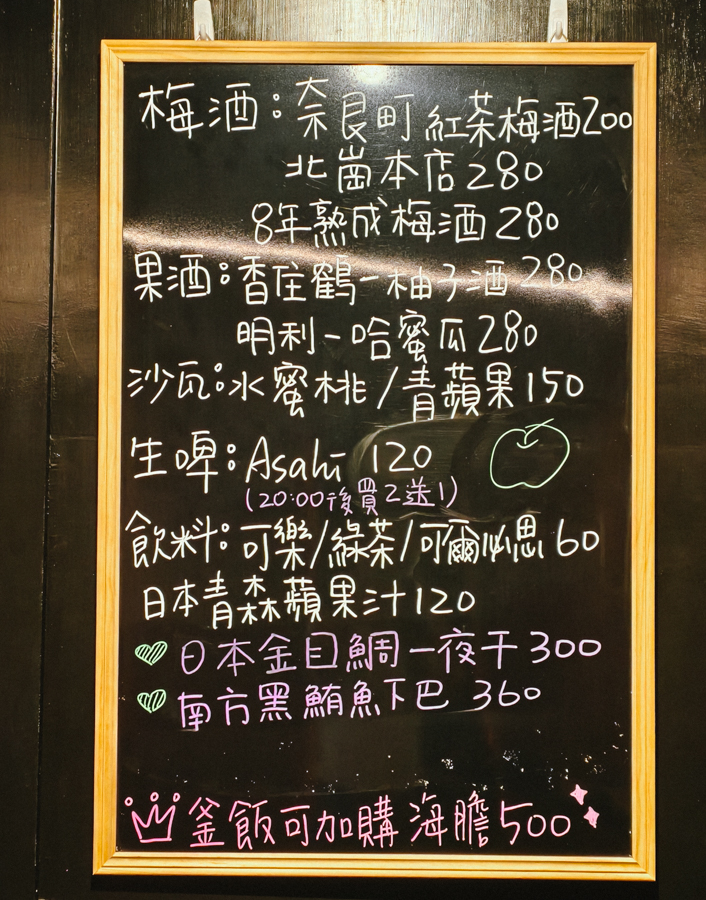 梅酒:奈良町 紅茶梅酒200
北崗本店280
8年熟成梅酒 280
果酒:香住鶴-柚子酒 280
明利-哈蜜瓜280
沙瓦:水蜜桃/青蘋果150
生啤:Asahi 120
(20:00後買2送1)
飲料:可樂/綠茶/可爾必思 60
日本青森蘋果汁120
日本金目鯛一夜干300
南方黑鮪魚下巴 360
釜飯可加購 海膽500